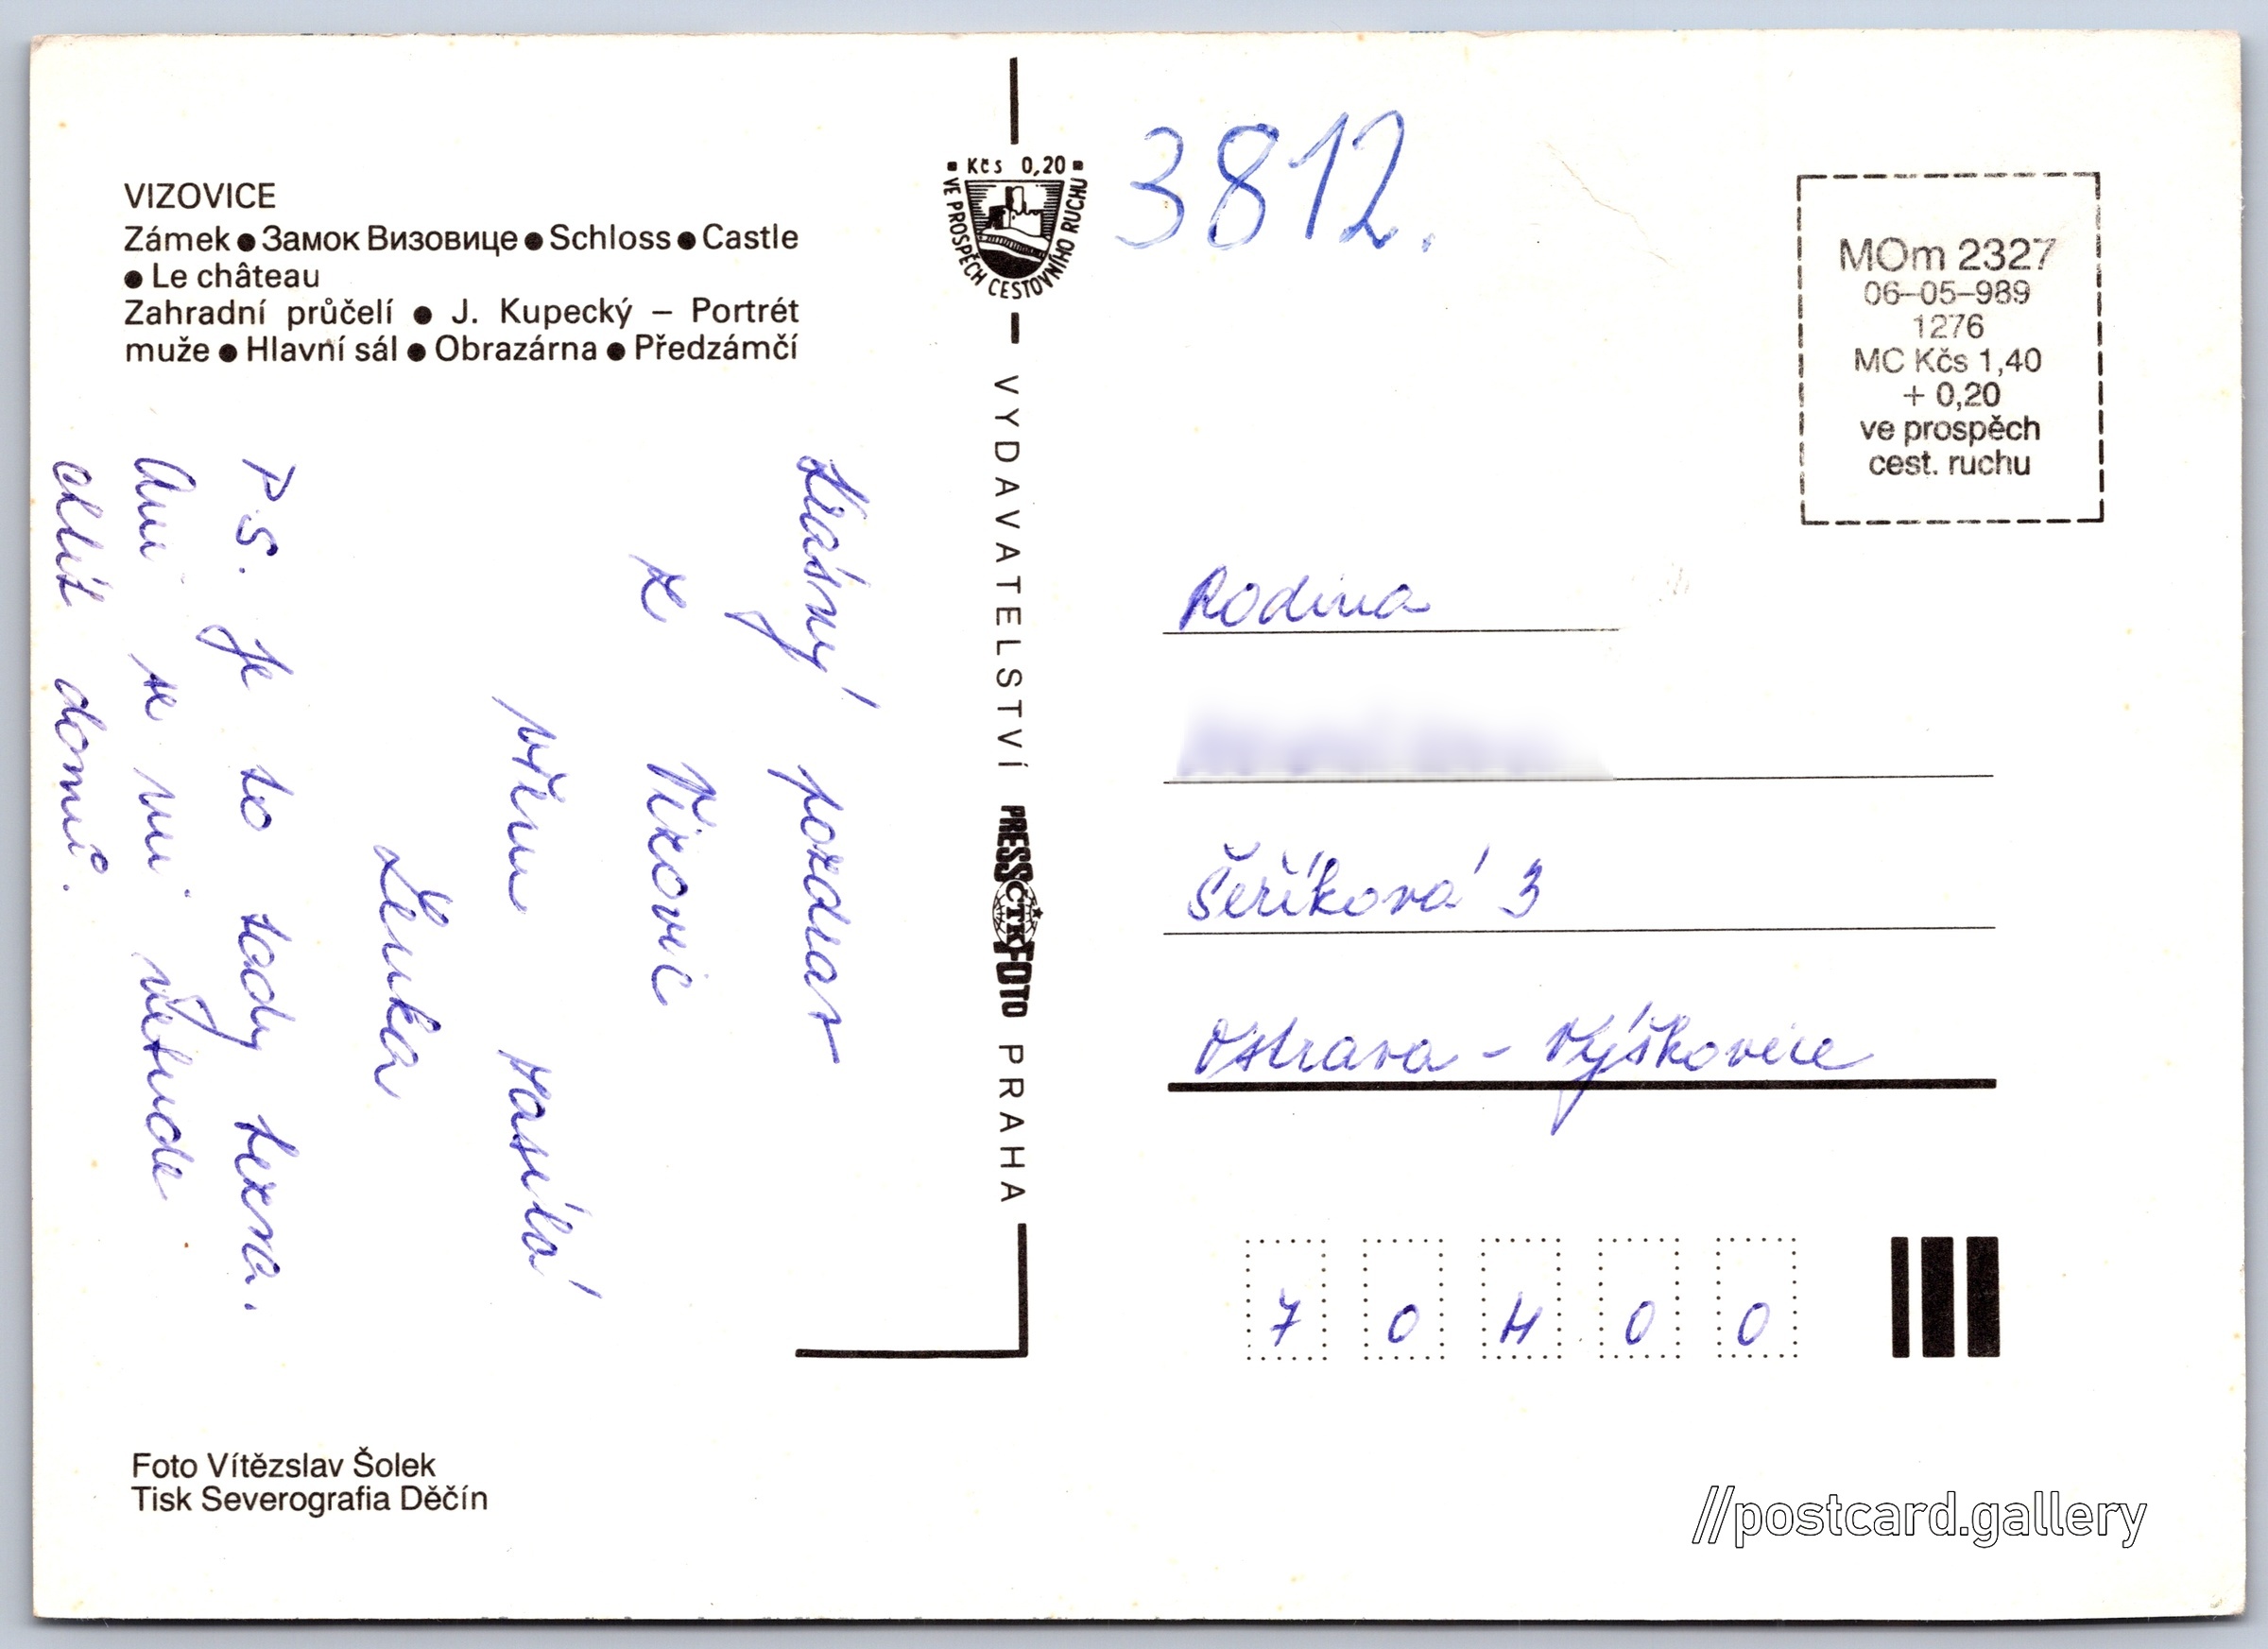 VIZOVICE
Zámek ● Замок Визовице ● Schloss ● Castle
● Le château
Zahradní průčelí ● J. Kupecký – Portrét
muže ● Hlavní sál ● Obrazárna ● Předzámčí
Krásný pozdrav
z Vizovic
přeje
Lenka
P.S. Je to tady
Ani se mi nebude
chtít domů.
Foto Vítězslav Šolek
Tisk Severografia Děčín
Kčs 0,20
VE PROSPĚCH CESTOVNÍHO RUCHU
VYDAVATELSTVÍ PRESSFOTO PRAHA
ČTK
3812.
MOm 2327
06–05–989
1276
MC Kčs 1,40
+ 0,20
ve prospěch
cest. ruchu
Rodina
Šeříková 3
Ostrava - Výškovice
7 0 4 0 0
//postcard.gallery